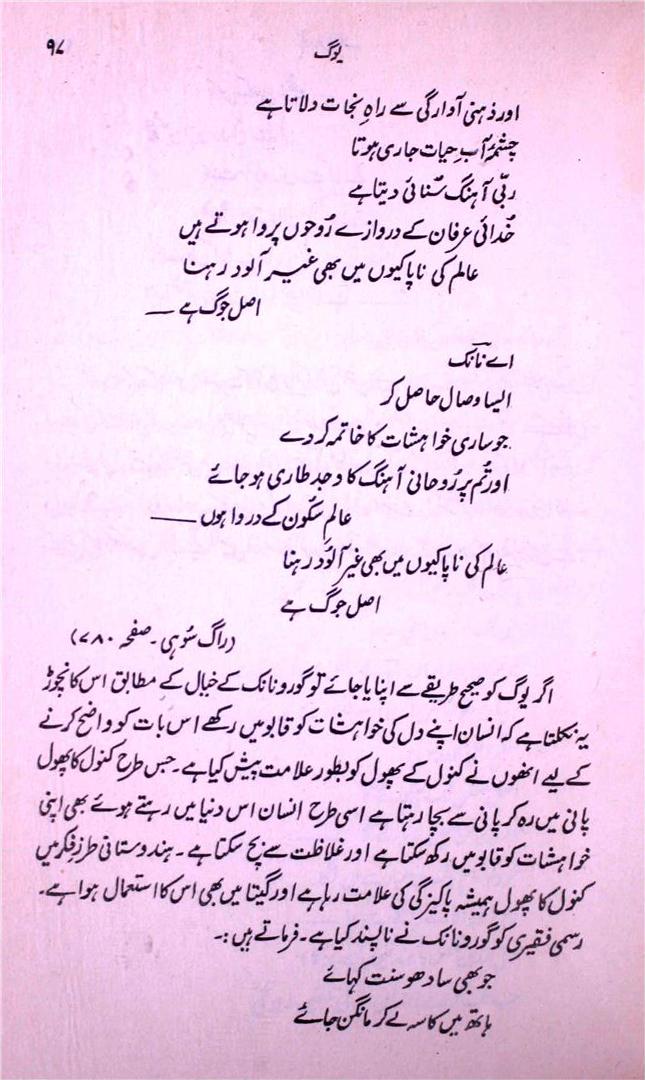 یوگ ۹۷
اور ذہنی آوارگی سے راہِ نجات دلاتا ہے
چشمۂ آبِ حیات جاری ہوتا
ربّی آہنگ سُنائی دیتا ہے
خُدائی عرفان کے دروازے رُوحوں پر وا ہوتے ہیں
عالم کی ناپاکیوں میں بھی غیر آلود رہنا
اصل جوگ ہے ــــ
اے نانک
ایسا وصال حاصل کر
جو ساری خواہشات کا خاتمہ کر دے
اور تُم پر رُوحانی آہنگ کا وجد طاری ہو جائے
عالمِ سکُون کے در وا ہوں ــــــ
عالم کی ناپاکیوں میں بھی غیر آلُود رہنا
اصل جوگ ہے
(راگ سُوہی۔ صفحہ ۷۸۰)
اگر یوگ کو صحیح طریقے سے اپنایا جائے تو گورو نانک کے خیال کے مطابق اس کا نچوڑ
یہ نکلتا ہے کہ انسان اپنے دل کی خواہشات کو قابو میں رکھے اس بات کو واضح کرنے
کے لیے انھوں نے کنول کے پھول کو بطور علامت پیش کیا ہے۔ جس طرح کنول کا پھول
پانی میں رہ کر پانی سے بچا رہتا ہے اسی طرح انسان اس دنیا میں رہتے ہوئے بھی اپنی
خواہشات کو قابو میں رکھ سکتا ہے اور غلاظت سے بچ سکتا ہے۔ ہندوستانی طرزِ فکر میں
کنول کا پھول ہمیشہ پاکیزگی کی علامت رہا ہے اور گیتا میں بھی اس کا استعمال ہوا ہے۔
رسمی فقیری کو گورو نانک نے ناپسند کیا ہے۔ فرماتے ہیں :۔
جو بھی سادھو سنت کہائے
ہاتھ میں کاسہ لے کر مانگن جائے